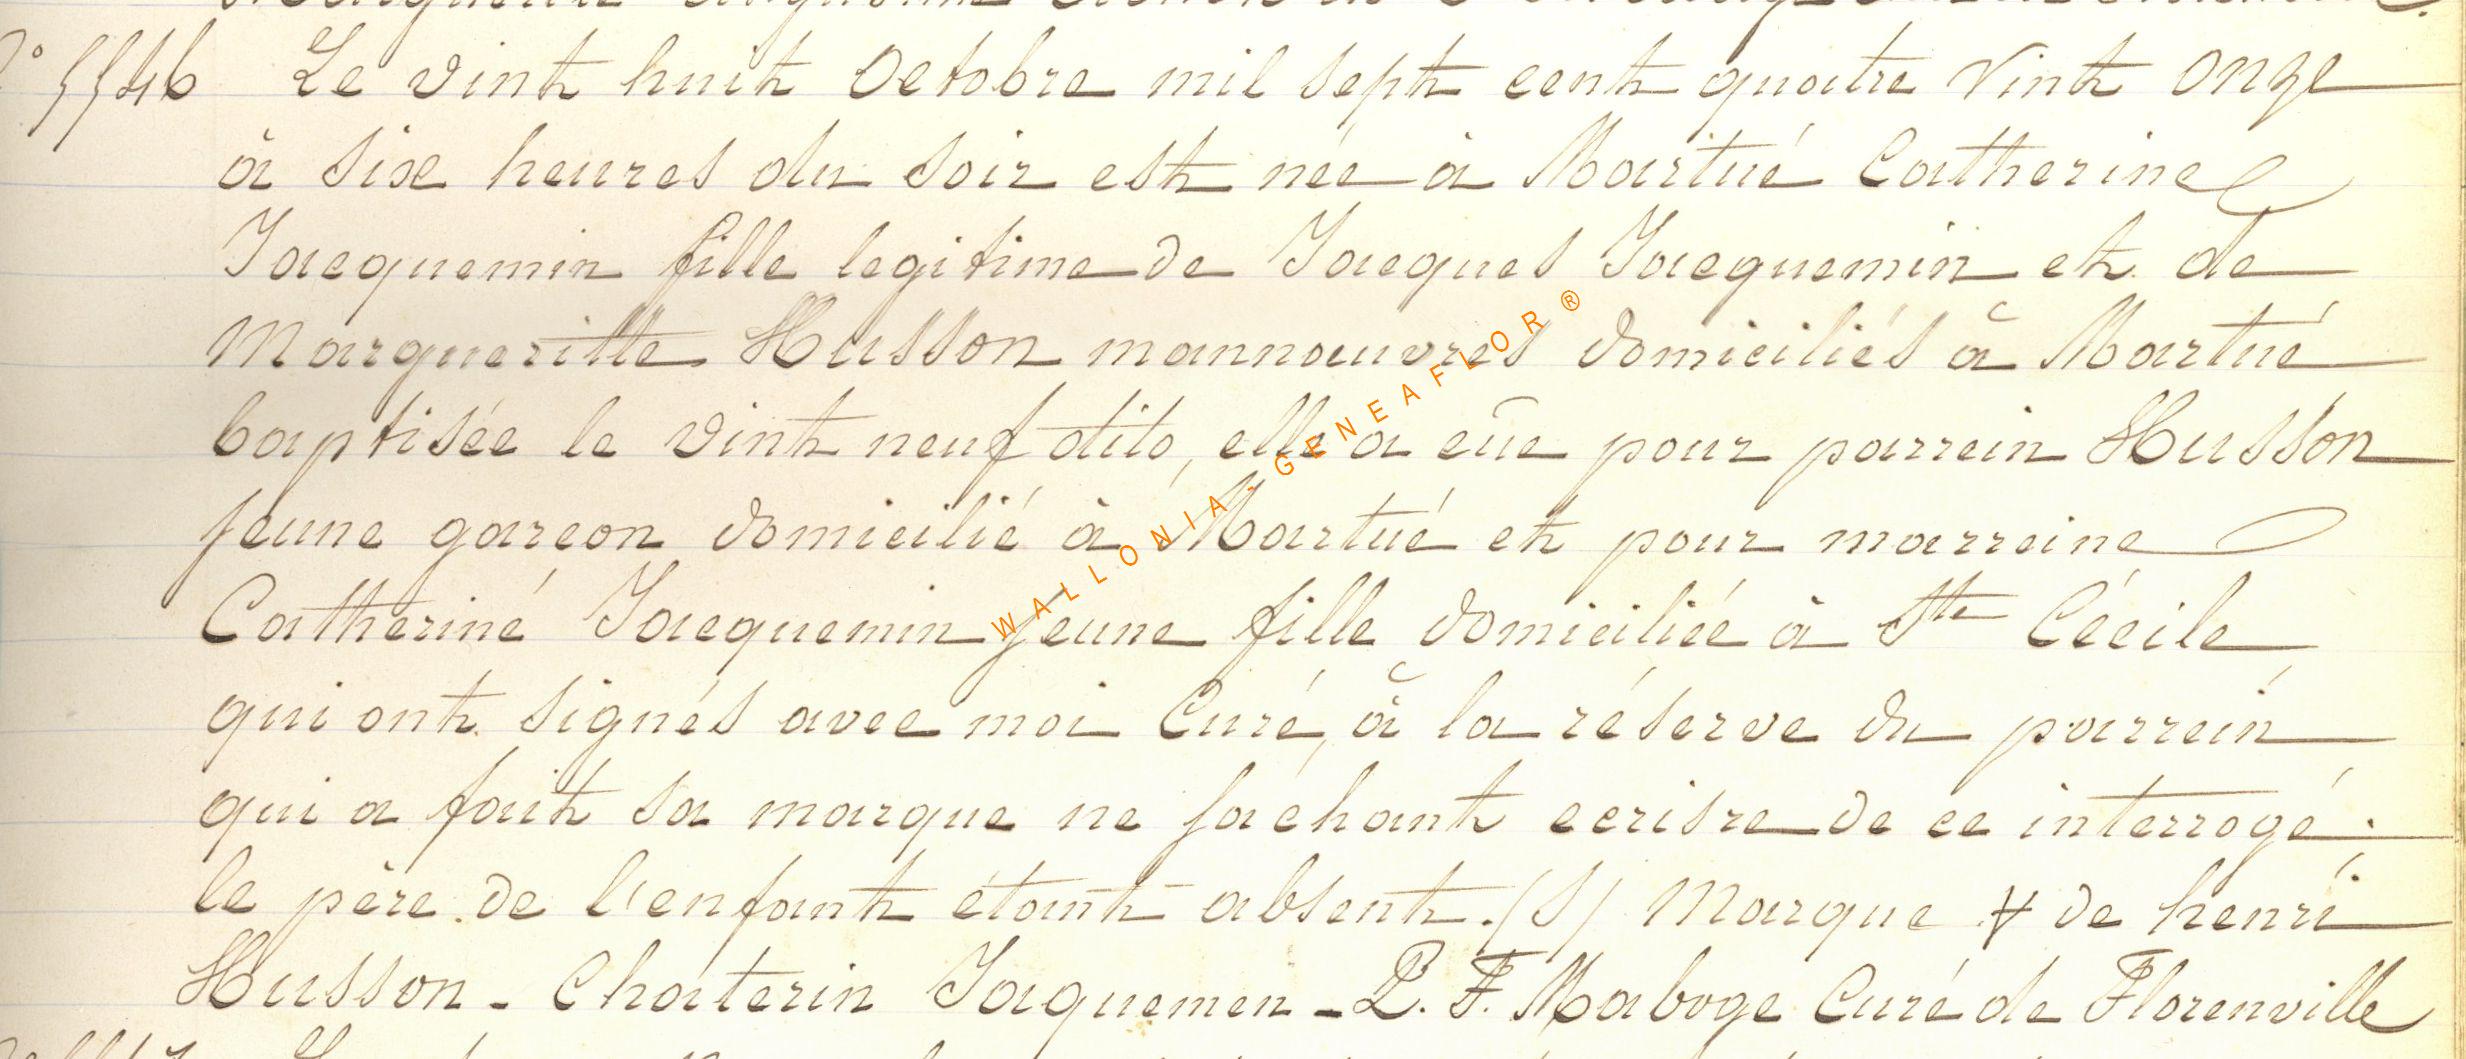 N° 5546 Le vint huit Octobre mil sept cent quatre vint onze
à six heures du soir est née à Martué Catherine
Jacquemin fille legitime de Jacques Jacquemin et de
Margueritte Husson mannœuvres domiciliés à Martué
baptisée le vint neuf dito, elle a eüe pour parrein Husson
jeune garcon domicilié à Martué et pour marreine
Catherine Jacquemin jeune fille domiciliée à Ste Cécile
qui ont signés avec moi Curé, à la réserve du parrein
qui a fait sa marque ne sachant ecrisre de ce interrogé.
le père de l'enfant étant absent. (S) Marque + de henri
Husson - Chaterin Jaquemen - P. F. Maboge Curé de Florenville
WALLONIA - GENEAFLOR ®